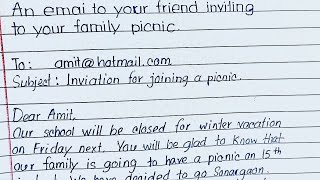 An emai to your friend inviting
to your family picnic.
To: amit@hatmail.com
Subject: Inviation for joining a picnic.
Dear Amit,
Our school will be closed for winter vacation
on Friday next. You will be glad to know that
our family is going to have a picnic on 15th
We have decided to go Sonargaon.